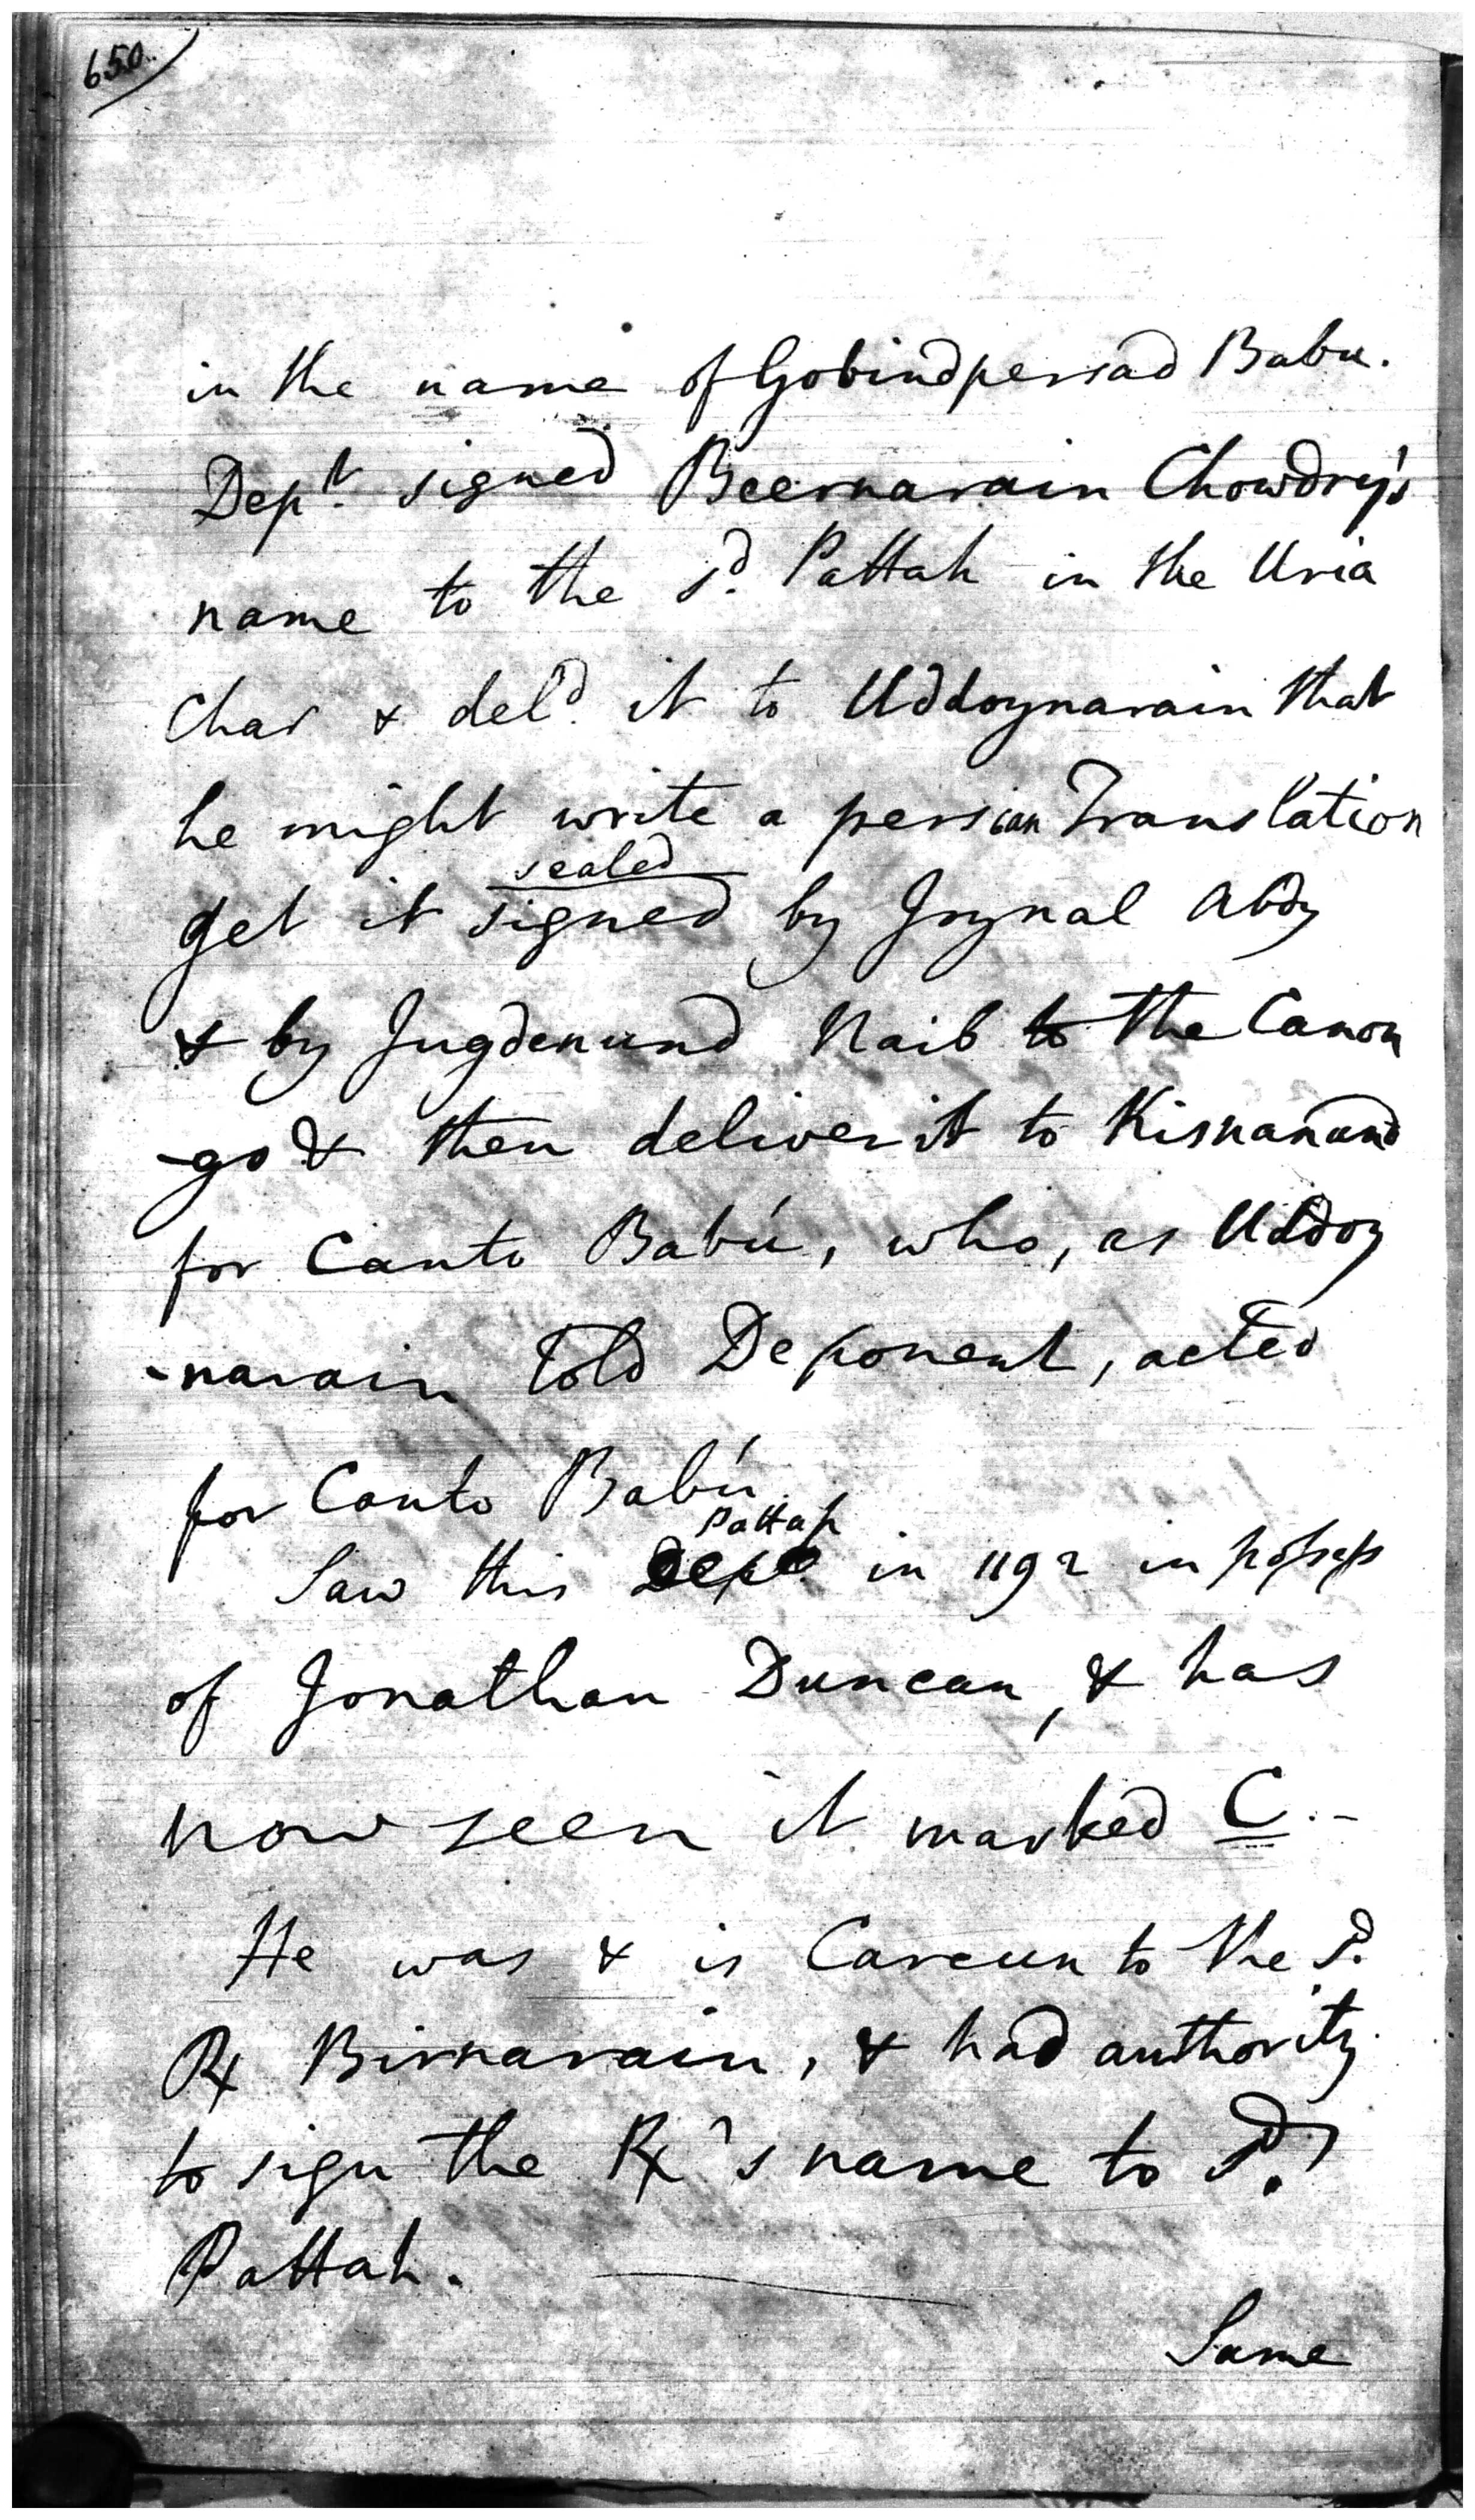 650.
in the name of Gobindpersad Babu.
Dept. signed Beernarain Chowdry's
name to the sd. Pattah in the Uria
Char & deld. it to Uddoynarain that
he might write a persian Translation
sealed
get it signed by Joynal Abdy
& by Jugdenund Naib to the Canon
-go & then deliver it to Kisnanund
for Canto Babú, who, as Uddoy
-narain told Deponent, acted
for Canto Babú.
Pattah
Saw this Dept. in 1192 in possess
of Jonathan Duncan, & has
now seen it marked C.-
He was & is Carcun to the sd.
Rx Birnarain, & had authority
to sign the Rx's name to sd.
Pattah.
Same